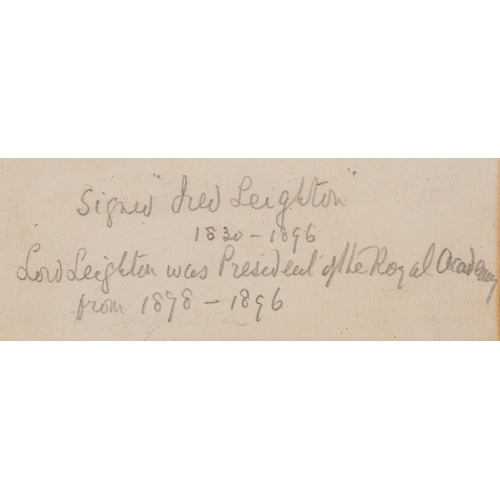 Signed "Fred Leighton"
1830-1896
Lord Leighton was President of the Royal Academy
from 1898-1896